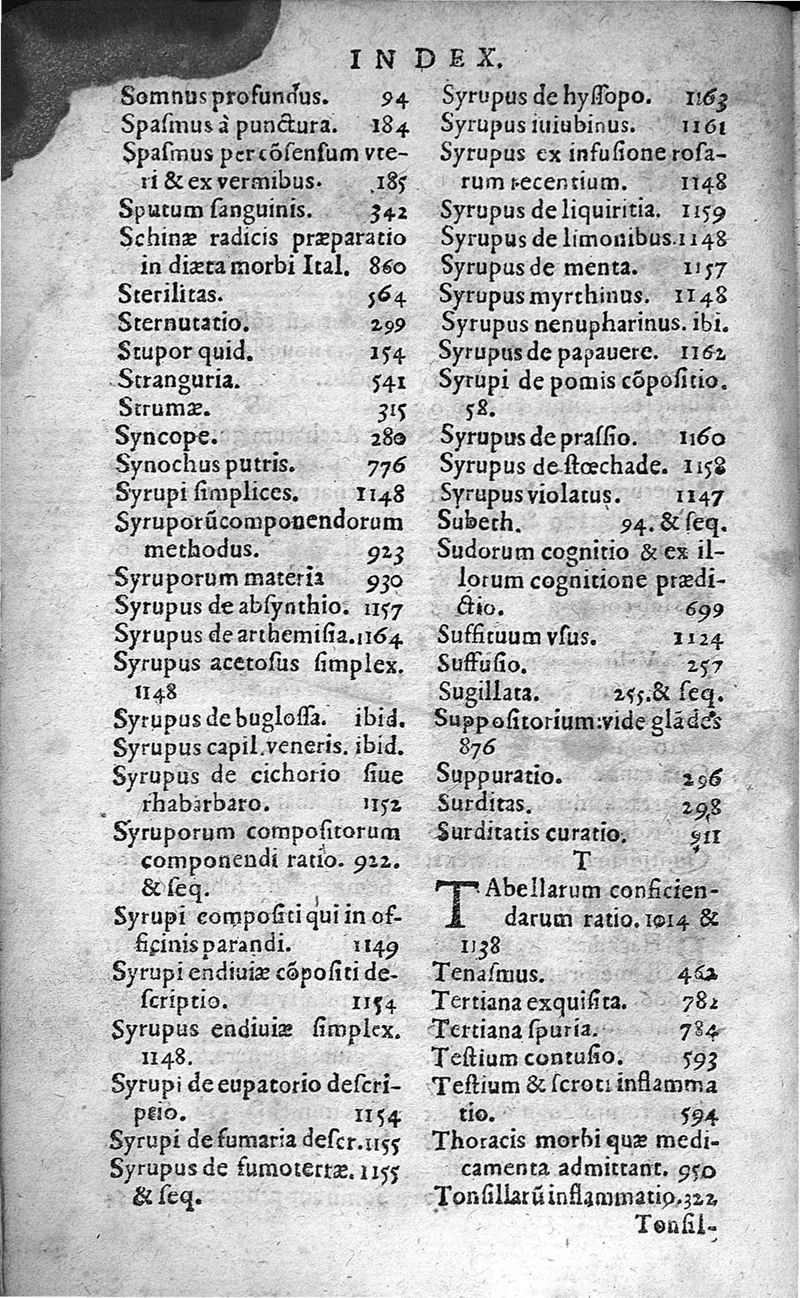 INDEX.
Somnus profundus. 94
Spaſmus à punctura. 184
Spaſmus per cõſenſum vte-
ri & ex vermibus. 185
Sputum ſanguinis. 342
Schinæ radicis præparatio
in diæta morbi Ital. 860
Sterilitas. 564
Sternutatio. 299
Stupor quid. 154
Stranguria. 541
Strumæ. 315
Syncope. 280
Synochus putris. 776
Syrupi ſimplices. 1148
Syruporũ componendorum
methodus. 923
Syruporum materia 930
Syrupus de abſynthio. 1157
Syrupus de arthemiſia. 1164
Syrupus acetoſus ſimplex.
1148
Syrupus de bugloſſa. ibid.
Syrupus capil. veneris. ibid.
Syrupus de cichorio ſiue
rhabarbaro. 1152
Syruporum compoſitorum
componendi ratio. 922.
& ſeq.
Syrupi compoſiti qui in of-
ficinis parandi. 1149
Syrupi endiuiæ cõpoſiti de-
ſcriptio. 1154
Syrupus endiuiæ ſimplex.
1148.
Syrupi de eupatorio deſcri-
ptio. 1154
Syrupi de fumaria deſcr. 1155
Syrupus de fumoterræ. 1155
& ſeq.
Syrupus de hyſſopo. 1163
Syrupus iuiubinus. 1161
Syrupus ex infuſione roſa-
rum recentium. 1148
Syrupus de liquiritia. 1159
Syrupus de limonibus. 1148
Syrupus de menta. 1157
Syrupus myrthinus. 1148
Syrupus nenupharinus. ibi.
Syrupus de papauere. 1162
Syrupi de pomis cõpoſitio.
58.
Syrupus de praſſio. 1160
Syrupus de ſtœchade. 1158
Syrupus violatus. 1147
Subeth. 94. & ſeq.
Sudorum cognitio & ex il-
lorum cognitione prædi-
ctio. 699
Suffituum vſus. 1124
Suffuſio. 257
Sugillata. 255. & ſeq.
Suppoſitorium: vide glãdes
876
Suppuratio. 296
Surditas. 298
Surditatis curatio. 911
T
TAbellarum conficien-
darum ratio. 1014 &
1138
Tenaſmus. 462
Tertiana exquiſita. 782
Tertiana ſpuria. 784
Teſtium contuſio. 593
Teſtium & ſcroti inflamma
tio. 594
Thoracis morbi quæ medi-
camenta admittant. 950
Tonſillarũ inflammatio. 322
Tonſil-